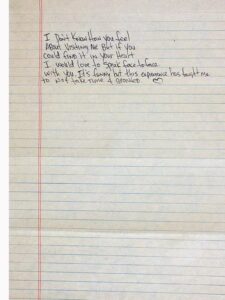 I Don't Know How you feel
About visiting me But if you
could find it in your Heart
I would love to speak face to face
with you. It's funny but this experience has taught me
to not take time 4 granted